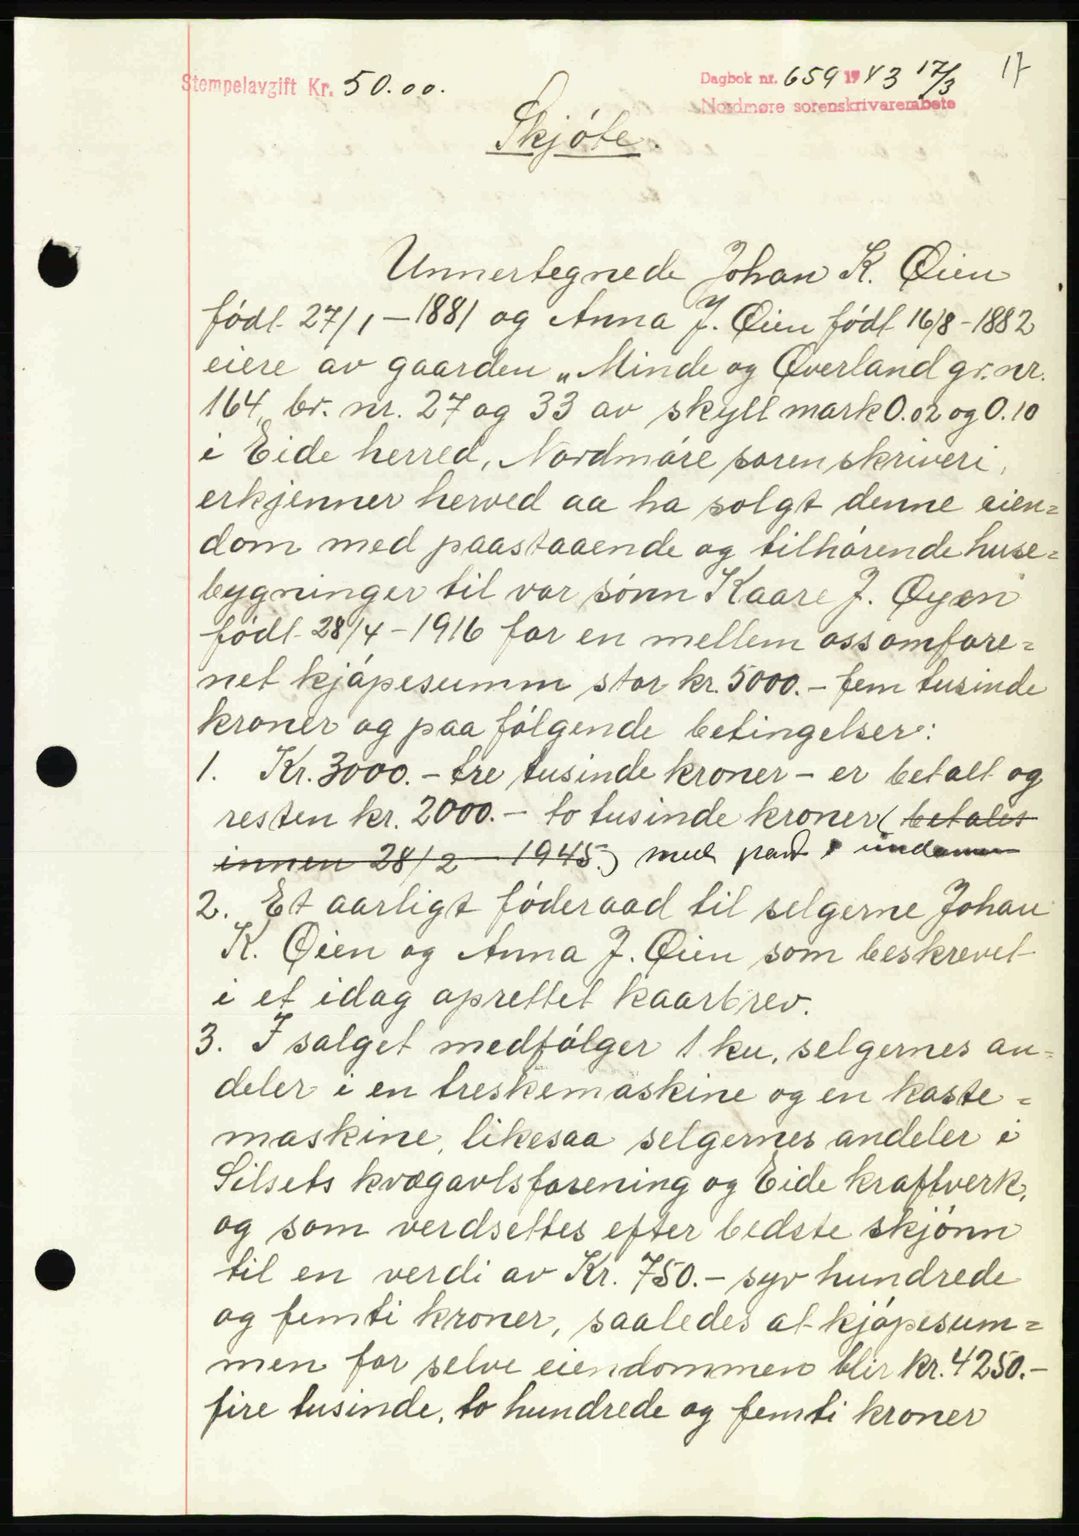 Stempelavgift Kr. 50.00.
Dagbok nr. 659 1943 17/3
17
Nordmøre sorenskrivarembete
Skjøte.
Unnertegnede Johan K. Øien
født 27/1 – 1881 og Anna J. Øien født 16/8 – 1882
eiere av gaarden „Minde og Øverland gr. nr.
164, br. nr. 27 og 33 av skyll mark 0.02 og 0.10
i Eide herred, Nordmøre sorenskriveri,
erkjenner herved aa ha solgt denne eien=
dom med paastaaende og tilhørende huse=
bygninger til vor sønn Kaare J. Øyen
født 28/4 – 1916 for en mellem oss omfore=
net kjøpesumm stor kr. 5000. – fem tusinde
kroner og paa følgende betingelser:
1. Kr. 3000. – tre tusinde kroner – er betalt og
resten kr. 2000. – to tusinde kroner (betales
innen 28/2 – 1945.) med pant i
2. Et aarligt føderaad til selgerne Johan
K. Øien og Anna J. Øien som beskrevet
i et idag oprettet kaarbrev.
3. I salget medfølger 1 ku, selgernes an=
deler i en treskemaskine og en kaste=
maskine, likesaa selgernes andeler i
Silsets kvægavlsforening og Eide kraftverk,
og som verdsettes efter bedste skjønn
til en verdi av Kr. 750. – syv hundrede
og femti kroner, saaledes at kjøpesum=
men for selve eiendommen blir kr. 4250. –
fire tusinde, to hundrede og femti kroner